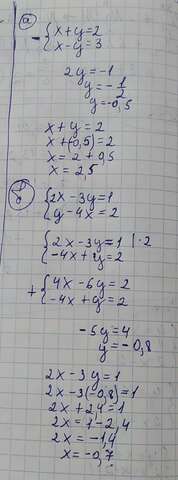 а)
- { x+y=2
x-y=3
2y=-1
y=-1/2
y=-0,5
x+y=2
x+(-0,5)=2
x=2+0,5
x=2,5
б) { 2x-3y=1
y-4x=2
{ 2x-3y=1 |·2
-4x+y=2
+ { 4x-6y=2
-4x+y=2
-5y=4
y=-0,8
2x-3y=1
2x-3(-0,8)=1
2x+2,4=1
2x=1-2,4
2x=-1,4
x=-0,7